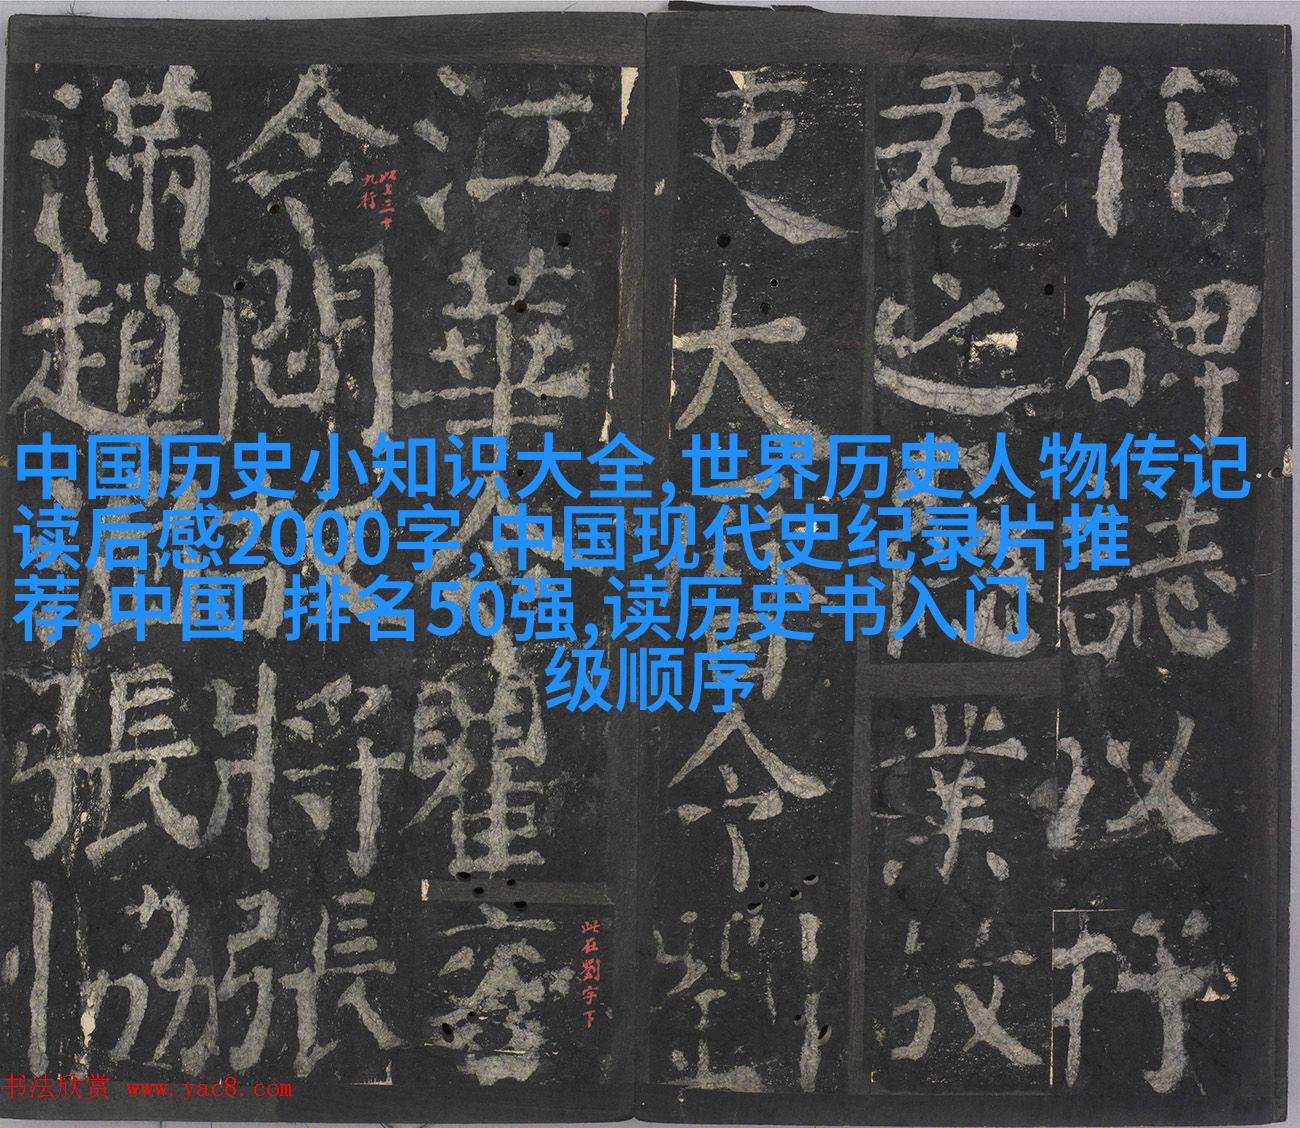 作碑□志以行
君之□業故
吏大□□令劉
江華□瞿鑫
令閻□將張
滿趙□張協
此七三十
九行
此在劉字下
中国历史小知识大全,世界历史人物传记
读后感2000字,中国现代史纪录片推
荐,中国 排名50强,读历史书入门
级顺序
书法欣赏 www.yac8.com